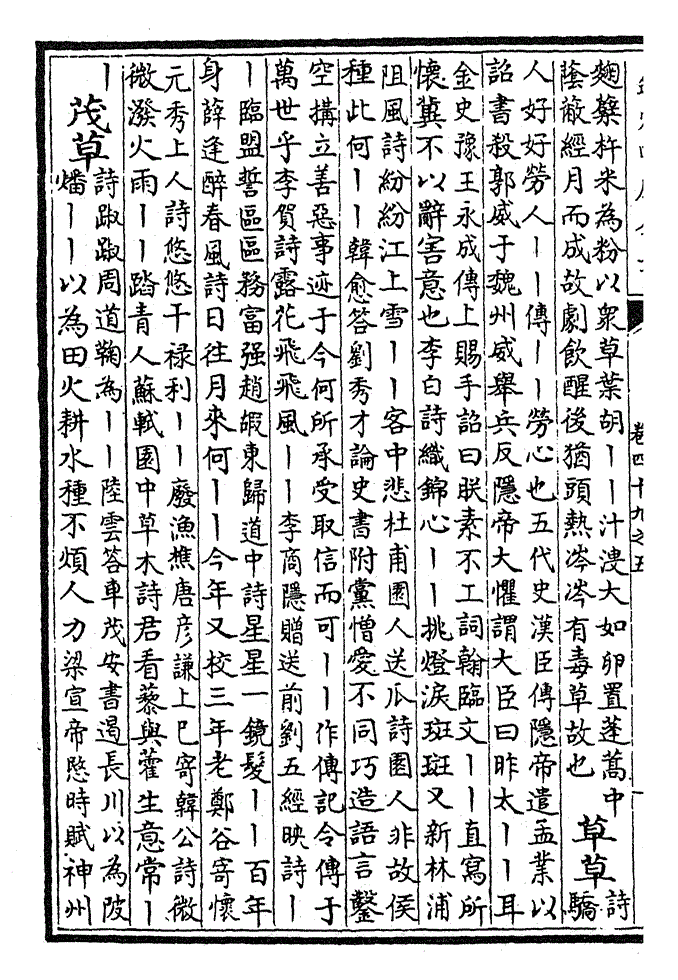 卷四十九之五
麴蘗杵米為粉以衆草葉胡｜｜汁溲大如卵置蓬蒿中
蔭蔽經月而成故劇飲醒後猶頭熱涔涔有毒草故也
草草
詩
驕
人好好勞人｜｜傳｜｜勞心也五代史漢臣傳隱帝遣孟業以
詔書殺郭威于魏州威舉兵反隱帝大懼謂大臣曰昨太｜｜耳
金史豫王永成傳上賜手詔曰朕素不工詞翰臨文｜｜直寫所
懷冀不以辭害意也李白詩織錦心｜｜挑燈淚斑斑又新林浦
阻風詩紛紛江上雪｜｜客中悲杜甫園人送瓜詩園人非故侯
種此何｜｜韓愈答劉秀才論史書附黨憎愛不同巧造語言鑿
空搆立善惡事迹于今何所承受取信而可｜｜作傳記令傳于
萬世乎李賀詩露花飛飛風｜｜李商隱贈送前劉五經映詩｜
｜臨盟誓區區務富强趙嘏東歸道中詩星星一鏡髪｜｜百年
身薛逢醉春風詩日往月來何｜｜今年又校三年老鄭谷寄懷
元秀上人詩悠悠干禄利｜｜廢漁樵唐彦謙上巳寄韓公詩微
微潑火雨｜｜踏青人蘇軾園中草木詩君看藜與藿生意常｜
｜
茂草
詩踧踧周道鞠為｜｜陸雲答車茂安書遏長川以為陂
燔｜｜以為田火耕水種不煩人力梁宣帝愍時賦神州